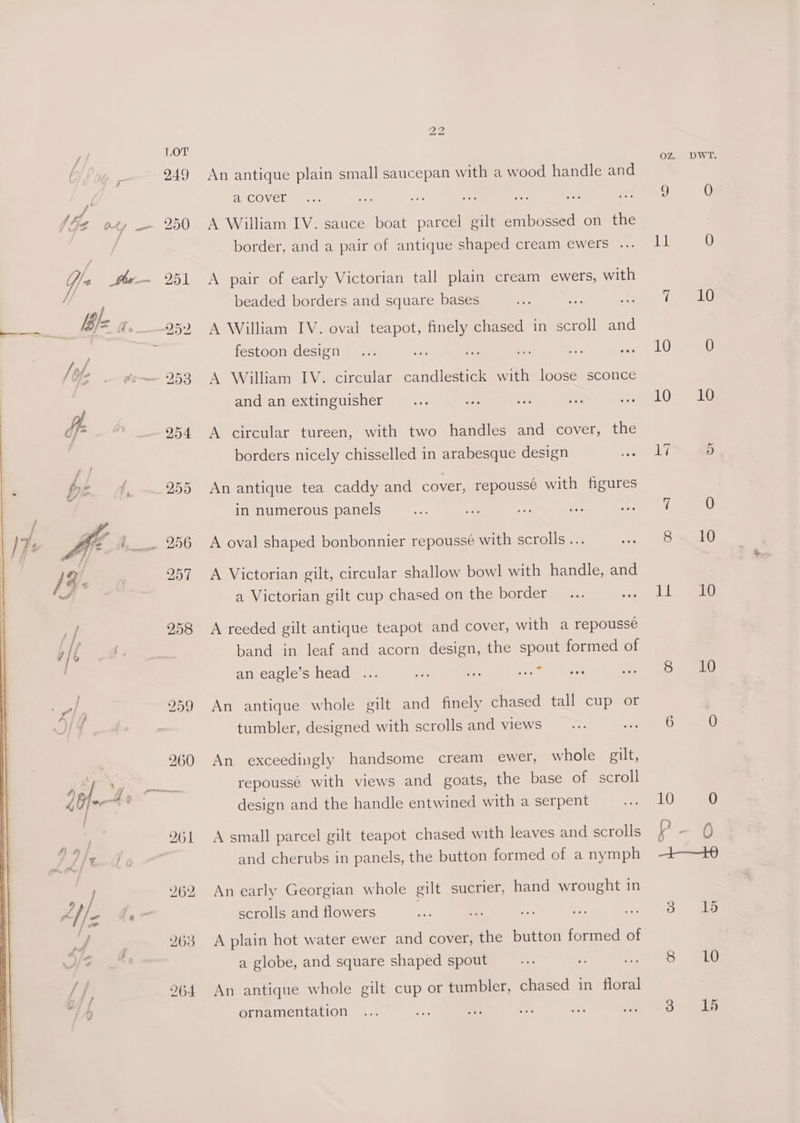 22
LOT OZ. DWT.
249 An antique plain small saucepan with a wood handle and
a cover ... ... ... ... ... ... ... 9 0
250 A William IV. sauce boat parcel gilt embossed on the
border, and a pair of antique shaped cream ewers ... 11 0
251 A pair of early Victorian tall plain cream ewers, with
beaded borders and square bases ... ... ... 7 10
252 A William IV. oval teapot, finely chased in scroll and
festoon design ... ... ... ... ... ... 10 0
253 A William IV. circular candlestick with loose sconce
and an extinguisher ... ... ... ... ... 10 10
254 A circular tureen, with two handles and cover, the
borders nicely chisselled in arabesque design ... 17 5
255 An antique tea caddy and cover, repoussé with figures
in numerous panels ... ... ... ... ... 7 0
256 A oval shaped bonbonnier repoussé with scrolls ... ... 8 10
257 A Victorian gilt, circular shallow bowl with handle, and
a Victorian gilt cup chased on the border ... ... 11 10
258 A reeded gilt antique teapot and cover, with a repoussé
band in leaf and acorn design, the spout formed of
an eagle's head ... ... ... ... ... ... 8 10
259 An antique whole gilt and finely chased tall cup or
tumbler, designed with scrolls and views ... ... 6 0
260 An exceedingly handsome cream ewer, whole gilt,
repoussé with views and goats, the base of scroll
design and the handle entwined with a serpent ... 10 0
261 A small parcel gilt teapot chased with leaves and scrolls
and cherubs in panels, the button formed of a nymph
262 An early Georgian whole gilt sucrier, hand wrought in
scrolls and flowers ... ... ... ... ... 3 15
263 A plain hot water ewer and cover, the button formed of
a globe, and square shaped spout ... ... ... 8 10
264 An antique whole gilt cup or tumbler, chased in floral
ornamentation ... ... ... ... ... ... 3 15